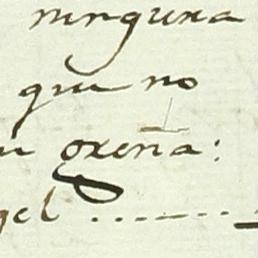 ninguna
que no
greña:
gel ..........